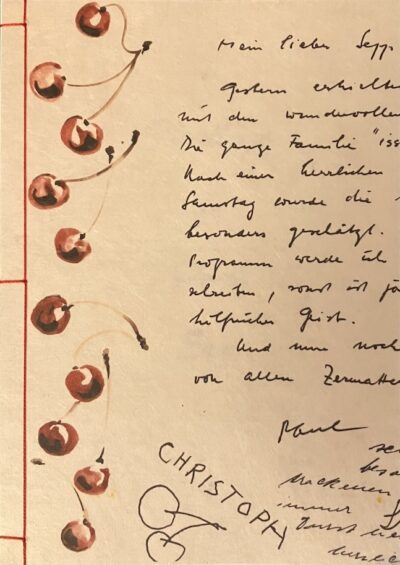 Mein lieber Sepp
Gestern erhielten
mit den wundervollen
Die ganze Familie "iss
Nach einer herrlichen
Samstag wurde die
besonders geschätzt.
Programm werde ich
schreiben, sonst ist
hilfreicher Geist.
Und nun noch
von allen Zermatter
Paul
CHRISTOPH
immer